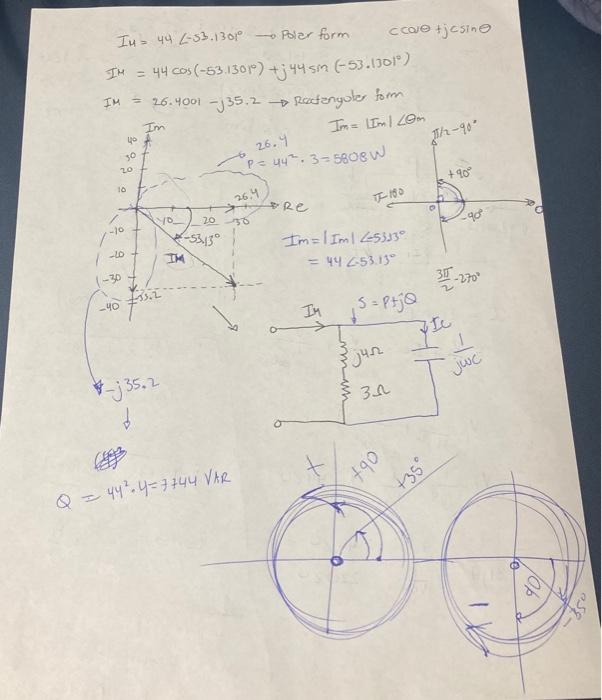 IM = 44 ∠-53.1301° → Poler form
ccosθ + jcsinθ
IM = 44 cos(-53.1301°) + j44 sin(-53.1301°)
IM = 26.4001 - j35.2 → Rectenguler form
Im
Im = |Im| ∠θm
π/2-90°
40
30
20
10
26.4
P = 44². 3 = 5808 W
+90°
π-180
0
-90°
26.4
Re
10
20
30
-10
-20
-30
-40
-53.13°
IM
-35.2
Im = |Im| ∠-53.13°
= 44 ∠-53.13°
3π/2-270°
IM
S = P+jQ
Ic
j4Ω
1/jwc
3Ω
-j35.2
Q = 44². 4 = 7744 VAR
+
+90
+35°
-
90
-35°